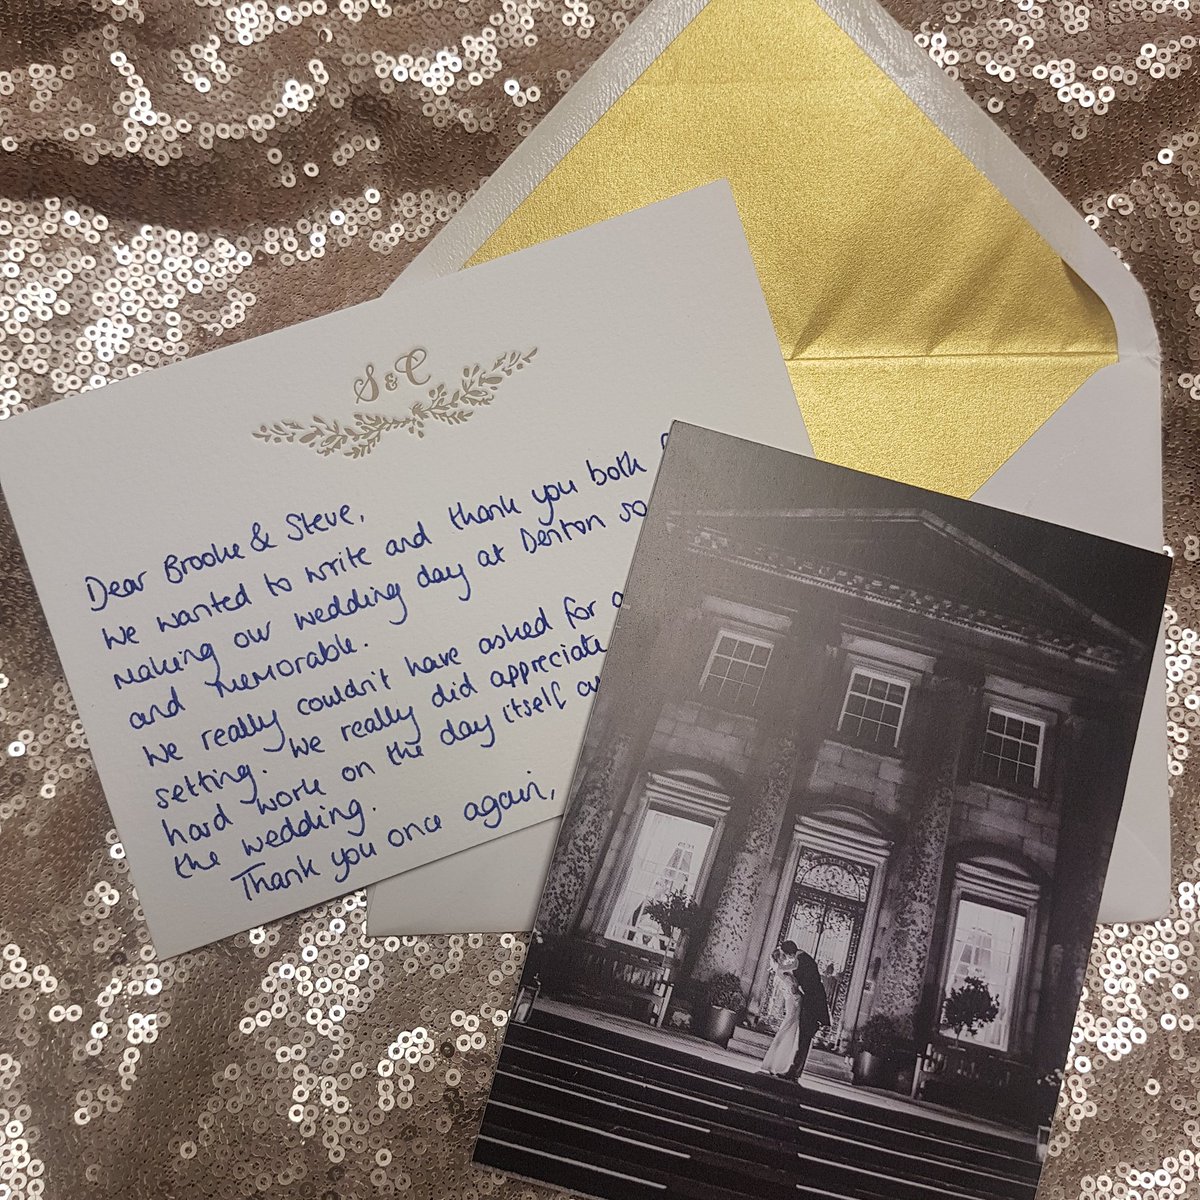 S & C
Dear Brooke & Steve,
We wanted to write and thank you both
making our wedding day at Denton so
and memorable.
We really couldn't have asked for a
setting. We really did appreciate
hard work on the day itself
the wedding.
Thank you once again,